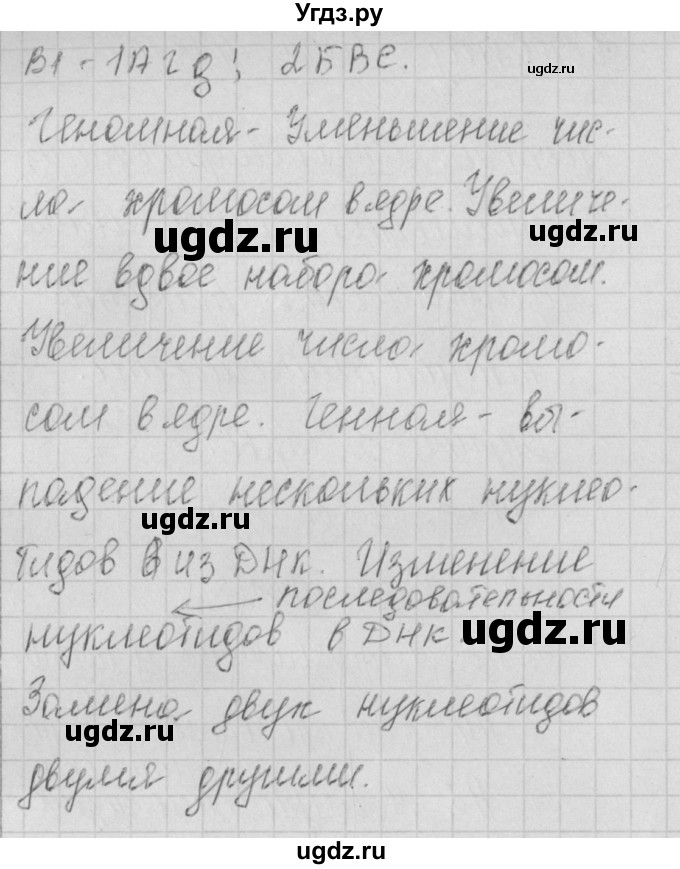 Угдз.ру
В1 - 1А г д; 2БВЕ.
ugdz.ru
Геномная - Уменьшение чис-
ла хромосом в ядре. Увеличе-
ugdz.ru
ugdz.ru
ние вдвое набора хромосом.
Увеличение числа хромо-
сом в ядре. Генная - вы-
падение нескольких нуклео-
ugdz.ru
тидов в из ДНК. Изменение
последовательности
нуклеотидов в ДНК
ugdz.ru
Замена двух нуклеотидов
ugdz.ru
двумя другими.
ugdz.ru